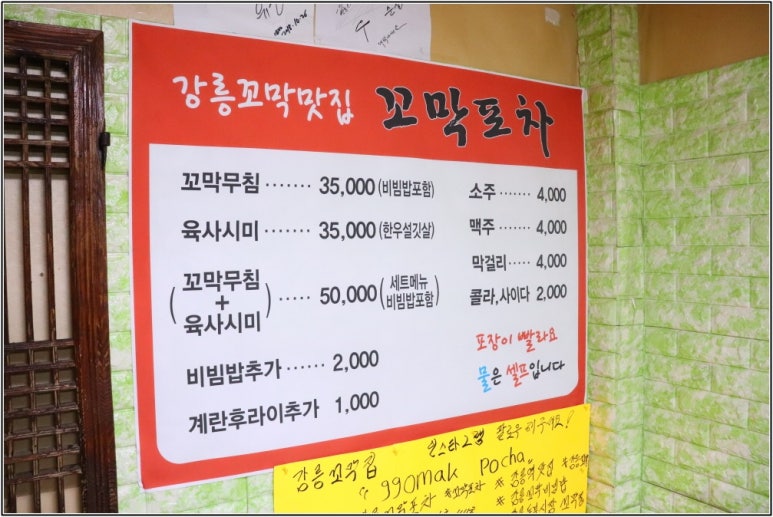 강릉꼬막맛집 꼬막포차
꼬막무침 ······· 35,000 (비빔밥포함)
육사시미 ······· 35,000 (한우설깃살)
(꼬막무침
+
육사시미) ····· 50,000 (세트메뉴
비빔밥포함)
비빔밥추가 ······ 2,000
계란후라이추가 1,000
소주 ······· 4,000
맥주 ······· 4,000
막걸리 ····· 4,000
콜라,사이다 2,000
포장이 빨라요
물은 셀프입니다
인스타그램 팔로우 해주세요!
강릉꼬막집
" ggomak pocha